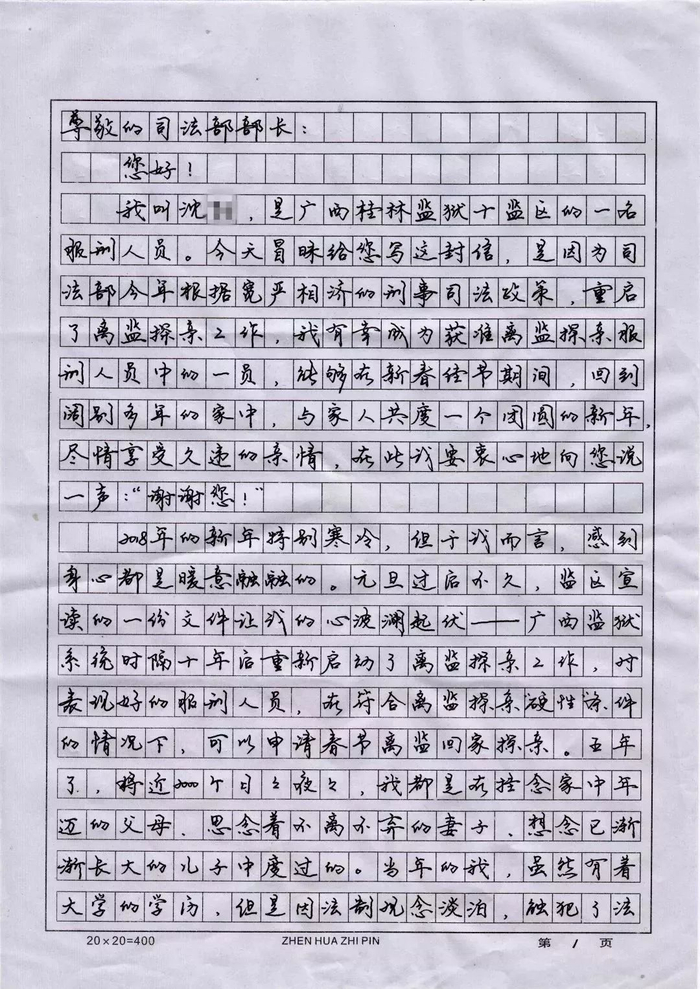 尊敬的司法部部长：
您好！
我叫沈 ，是广西桂林监狱十监区的一名
服刑人员。今天冒昧给您写这封信，是因为司
法部今年根据宽严相济的刑事司法政策，重启
了离监探亲工作，我有幸成为获准离监探亲服
刑人员中的一员，能够在新春佳节期间，回到
阔别多年的家中，与家人共度一个团圆的新年，
尽情享受久违的亲情，在此我要衷心地向您说
一声：“谢谢您！”
2018年的新年特别寒冷，但于我而言，感到
身心都是暖意融融的。元旦过后不久，监区宣
读的一份文件让我的心波澜起伏——广西监狱
系统时隔十年后重新启动了离监探亲工作，对
表现好的服刑人员，在符合离监探亲硬性条件
的情况下，可以申请春节离监回家探亲。五年
了，将近2000个日日夜夜，我都是在挂念家中年
迈的父母、思念着不离不弃的妻子、想念已渐
渐长大的儿子中度过的。当年的我，虽然有着
大学的学历，但是因法制观念淡泊，触犯了法
20×20=400 ZHEN HUA ZHI PIN 第 1 页